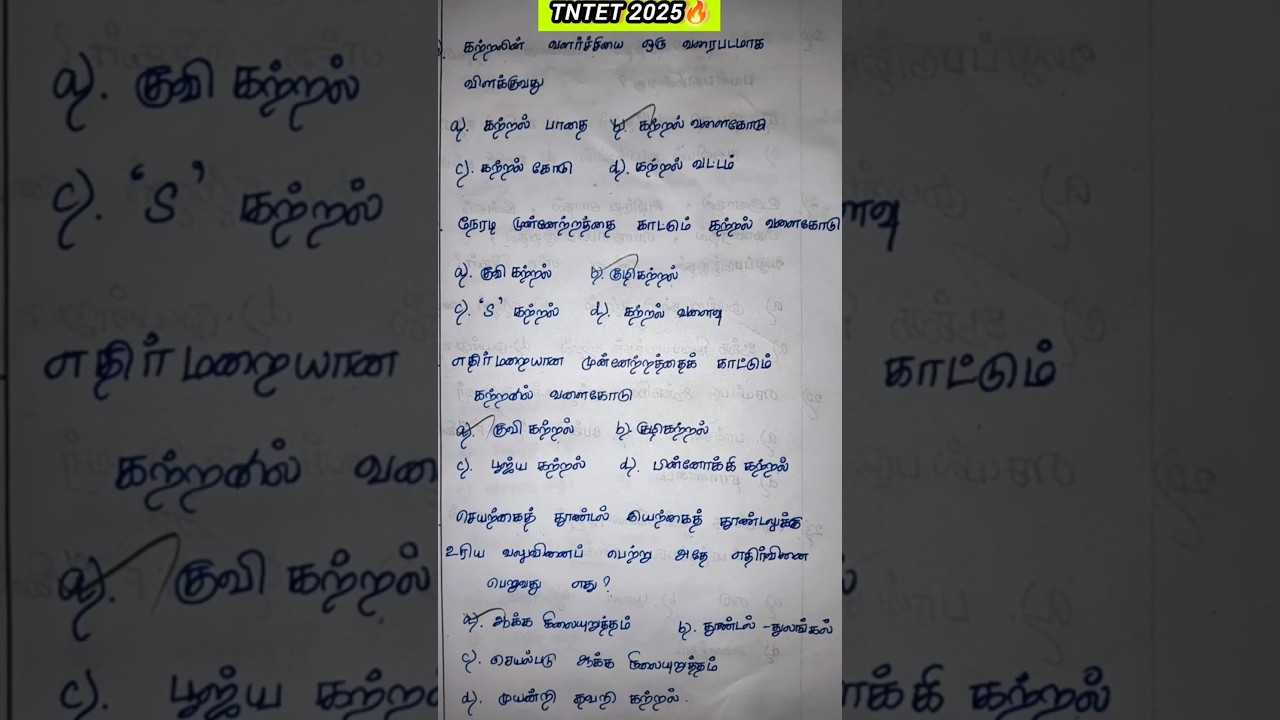 TNTET 2025🔥
கற்றலின் வளர்ச்சியை ஒரு வரைபடமாக
விளக்குவது
a). கற்றல் பாதை b). கற்றல் வளைகோடு
c). கற்றல் கோடு d). கற்றல் வட்டம்
நேரடி முன்னேற்றத்தை காட்டும் கற்றல் வளைகோடு
a). குவி கற்றல் b). குழிகற்றல்
c). 'S' கற்றல் d). கற்றல் வளைவு
எதிர்மறையான முன்னேற்றத்தைக் காட்டும்
கற்றலில் வளைகோடு
a). குவி கற்றல் b). குழிகற்றல்
c). பூஜ்ய கற்றல் d). பின்னோக்கி கற்றல்
செயற்கைத் தூண்டல் இயற்கைத் தூண்டலுக்கு
உரிய வலுவினைப் பெற்று அதே எதிர்வினை
பெறுவது எது?
a). ஆக்க நிலையுறுத்தம் b). தூண்டல் - துலங்கல்
c). செயல்படு ஆக்க நிலையுறுத்தம்
d). முயன்றி தவறி கற்றல்.